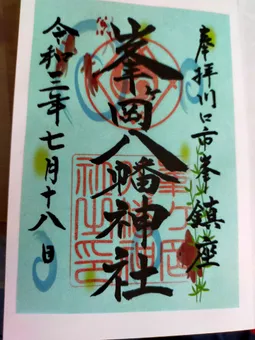 奉拝川口市峯鎮座
峯ヶ岡八幡神社
令和二年七月十八日